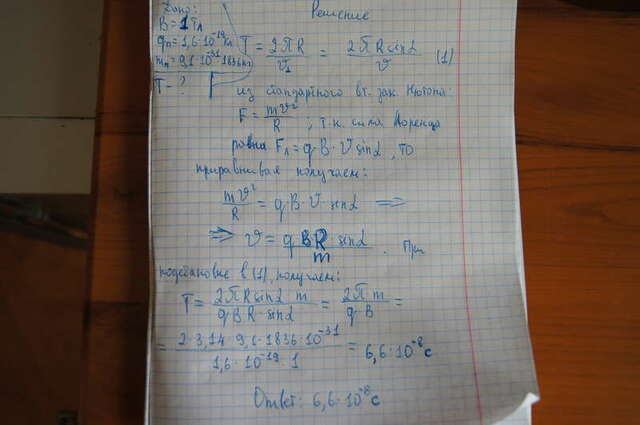 Дано:
Решение
B = 1 Тл
qп = 1,6·10⁻¹⁹ Кл
mп = 9,1·10⁻³¹·1836 кг
T - ?
T = 2πR / v₁ = 2πR sinα / v (1)
из стандартного вт. зак. Нютона:
F = mv² / R, т.к. сила Лоренца
равна Fл = q·B·v sinα, то
приравнивая получаем:
mv² / R = qB·v sinα ⇒
⇒ v = qBR sinα / m. При
подстановке в (1), получаем:
T = 2πR sinα m / qBR·sinα = 2πm / qB =
= 2·3,14·9,1·1836·10⁻³¹ / 1,6·10⁻¹⁹·1 = 6,6·10⁻⁸ с
Ответ: 6,6·10⁻⁸ с